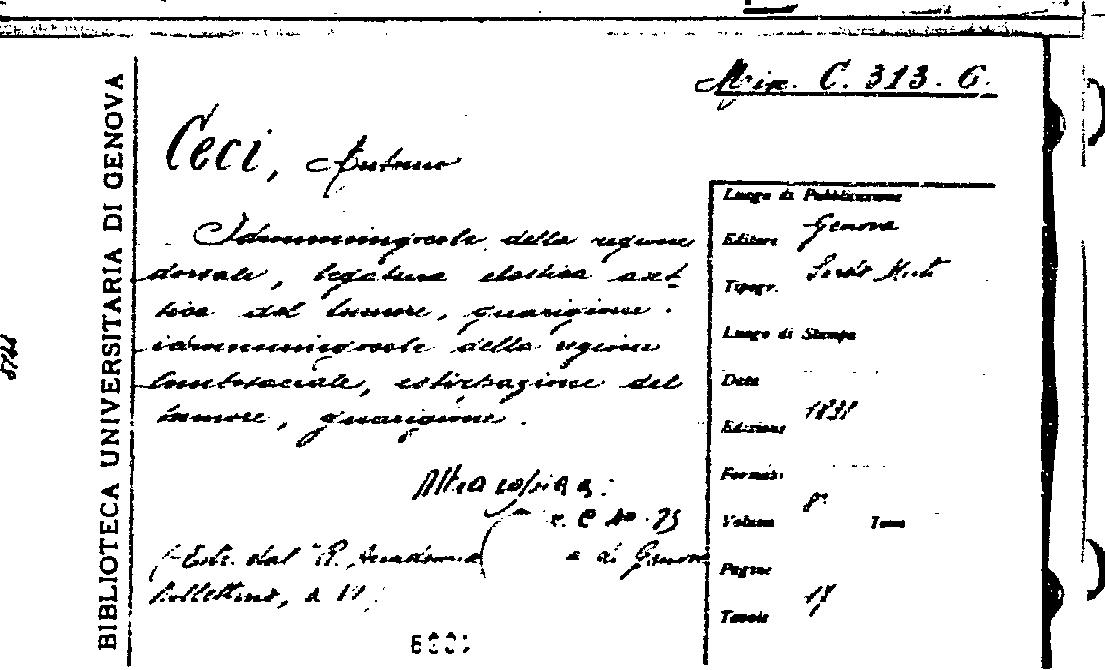 BIBLIOTECA UNIVERSITARIA DI GENOVA
Misc. C. 313. 6.
Ceci, Antonio
Idromeningocele della regione
dorsale, legatura elastica aset
tica del tumore, guarigione.
idromeningocele della regione
lombosacrale, estirpazione del
tumore, guarigione.
Altra copia a:
(Estr. dal R. Accademia
di Genova
Bollettino, a. VI
Luogo di Pubblicazione
Genova
Editore
Tipogr.
Luogo di Stampa
Data
Edizione
Formato
8°
Volume Tomo
Pagine
17
Tavole